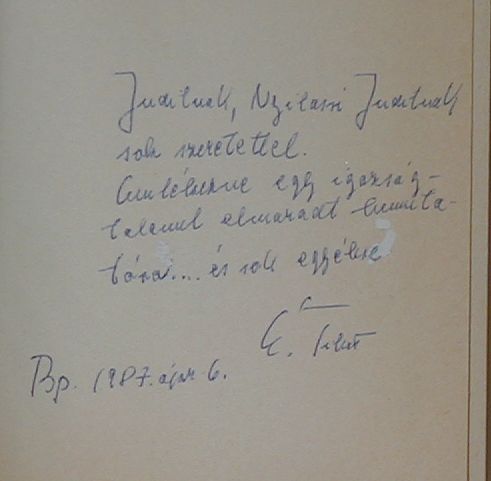 Juditnak, Nyilassi Juditnak
sok szeretettel.
Emlékezve egy igazság-
talanul elmaradt bemuta-
tóra.... és sok egyébre
E.
Bp. 1987. ápr. 6.